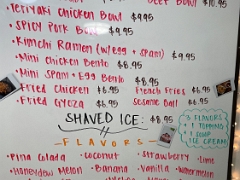 BEEF BOWL $9.95
• TERIYAKI CHICKEN BOWL $9.95
• SPICY PORK BOWL $9.95
• KIMCHI RAMEN (w/EGG + SPAM) $9.95
• MINI CHICKEN BENTO $8.95
• MINI SPAM + EGG BENTO $8.95
• FRIED CHICKEN $6.95 FRENCH FRIES $5.95
• FRIED GYOZA $6.95 SESAME BALL $5.95
SHAVED ICE: $8.95
FLAVORS
3 FLAVORS
+ 1 TOPPING
+ 1 SCOOP
ICE CREAM
• PINA COLADA • COCONUT • STRAWBERRY • LIME
• HONEYDEW MELON • BANANA • VANILLA • WATERMELON